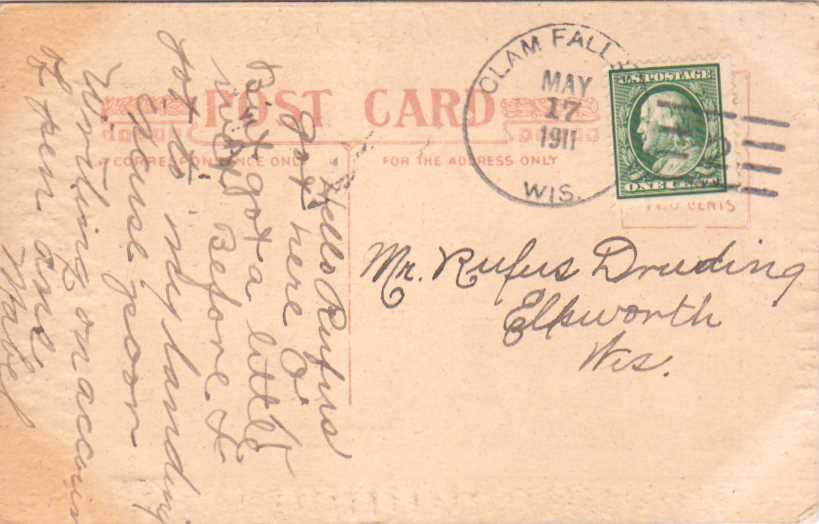 POST CARD
CORRESPONDENCE ONLY
FOR THE ADDRESS ONLY
CLAM FALLS
MAY
17
1911
WIS.
U.S. POSTAGE
ONE CENT
TWO CENTS
Mr. Rufus Druding
Ellsworth
Wis.
Hello Rufus
Got here O.K
But got a little
wet Before I
got to my landing
Excuse poor
Writing on account
of pen
Mabel